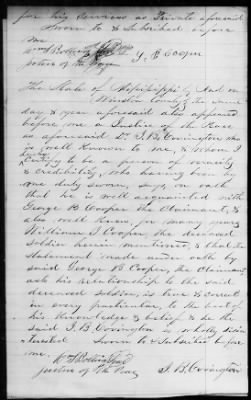 for his services as Private aforesaid
Sworn to & Subscribed before
me
Justice of the Peace J. B Cooper
The State of Mississippi And on
Winston County the same
day & year aforesaid also appeared
before me a Justice of the Peace
as aforesaid J. B Covington who
is well known to me, & whom I
Certify to be a person of veracity
& credibility, who having been by
me duly sworn, says, on oath
that he is well acquainted with
George B Cooper the Claimant, &
also well knew for many years
William J Cooper, the deceased
soldier herein mentioned, & that the
statement made under oath by
said George B Cooper, the Claimant
as to his relationship to the said
deceased soldier, is true & correct
in every particular to the best of
his knowledge & belief & he the
said J. B Covington is wholly disin
terested. Sworn to & Subscribed before
me.
Justice of the Peace J. B. Covington